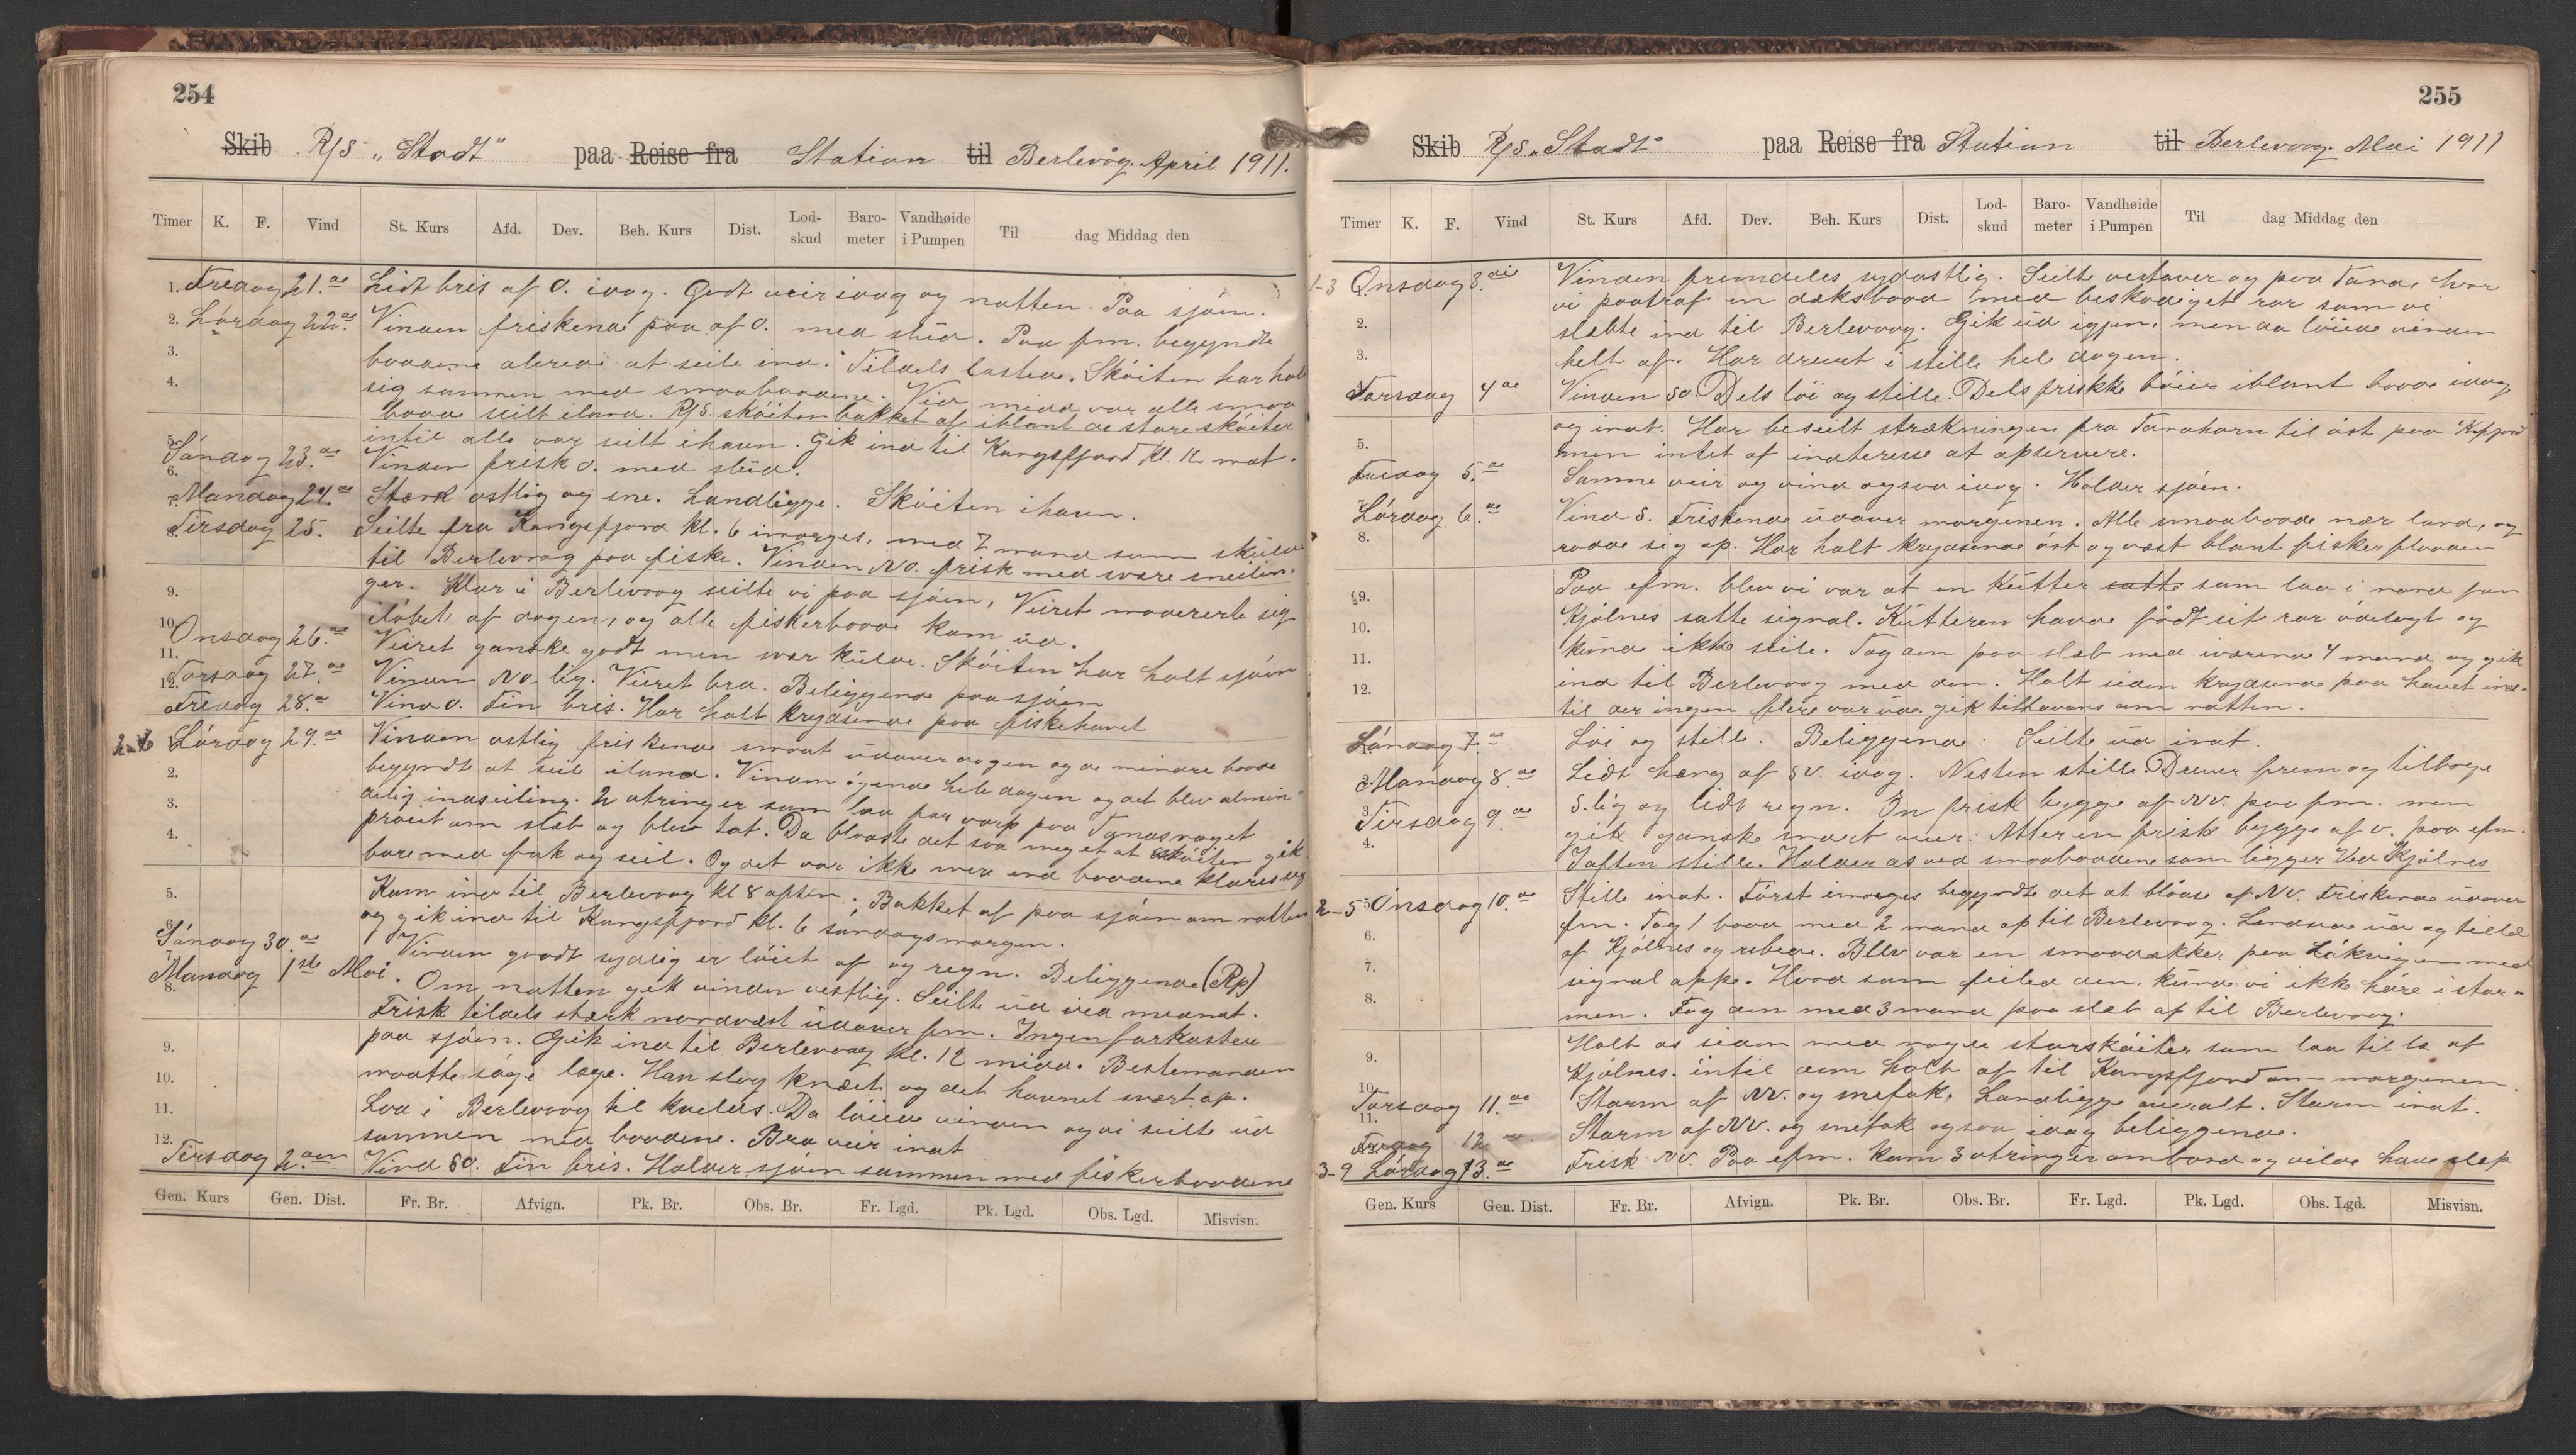 254
Skib R/S „Stadt" paa Reise fra Station til Berlevåg. April 1911.
Timer K. F. Vind St. Kurs Afd. Dev. Beh. Kurs Dist. Lod-skud Baro-meter Vandhøide i Pumpen Til dag Middag den
1. Fredag 21.de Lidt bris af O. idag. Godt veir idag og natten. Paa sjøen.
2. Lørdag 22.de Vinden friskende paa af O. med snø. Paa fm. begyndte
3. baadene allerede at seile ind. Tildels lastede. Skøiten har holt
4. sig sammen med smaabaadene. Ved midd var alle smaa
baade seilt iland. R/S. skøiten bakket af iblant de store skøiter
5. intil alle var seilt ihavn. Gik ind til Kongsfjord kl. 12 nat.
Søndag 23.de Vinden frisk O. med snø.
6.
7. Mandag 24.de Stærk ostlig og sne. Landligge. Skøiten ihavn.
8. Tirsdag 25. Seilte fra Kongsfjord kl. 6 imorges, med 7 mand som skulde
til Berlevaag paa fiske. Vinden NO. frisk med svære sneilin-
9. ger. Klar i Berlevaag seilte vi paa sjøen, Veiret modererte sig
10. iløbet af dagen, og alle fiskerbaade kom ud.
Onsdag 26.de Veiret ganske godt men svær kulde. Skøiten har holt sjøen
11.
12. Torsdag 27.de Vinden NO-lig. Veiret bra. Beliggende paa sjøen
Fredag 28.de Vind O. Fin bris. Har holt krydsende paa fiskehavet
2-6 Lørdag 29.de Vinden ostlig friskende smaat udover dagen og de mindre baade
2. begyndte at seile iland. Vinden øgende hele dagen og det blev almin"
3. delig indseiling. 2 otringer som laa for varp paa Tanasnaget
4. preiet om slæb og blev tat. Da blaaste det saa meget at skøiten gik
bare med fok og seil. Og det var ikke mere end baadene klarte sig
5. Kom ind til Berlevaag kl 8 aften. Bakket af paa sjøen om natten
6. og gik ind til Kongsfjord kl. 6 søndagsmorgen.
Søndag 30.de Vinden gaadt sydlig er løiet af og regn. Beliggende (Rp)
7. Mandag 1ste Mai. Om natten gik vinden vestlig. Seilte ud ved midnat.
8. Frisk tildels stærk nordvest udover fm. Ingen farkoster
9. paa sjøen. Gik ind til Berlevaag kl. 12 midd. Bestemanden
10. maatte søge læge. Han slog knæet og det hovnet svært op.
11. Laa i Berlevaag til kvelds. Da løiede vinden og vi seilte ud
12. sammen med baadene. Bra veir inat
Tirsdag 2.den Vind SO. Fin bris. Holder sjøen sammen med fiskerbaadene
Gen. Kurs Gen. Dist. Fr. Br. Afvign. Pk. Br. Obs. Br. Fr. Lgd. Pk. Lgd. Obs. Lgd. Misvisn.
255
Skib R/S. „Stadt" paa Reise fra Station til Berlevaag. Mai 1911
Timer K. F. Vind St. Kurs Afd. Dev. Beh. Kurs Dist. Lod-skud Baro-meter Vandhøide i Pumpen Til dag Middag den
1-3 Onsdag 3.die Vinden fremdeles sydostlig. Seilte vestover og paa Tana, hvor
vi paatraf en dæksbaad med beskadiget ror som vi
2. slæbte ind til Berlevaag. Gik ud igjen, men da løiede vinden
3. helt af. Har drevet i stille hele dagen.
Torsdag 4de Vinden SO. Dels løi og stille. Dels friske bøier iblant baade idag
og inat. Har beseilt strækningen fra Tanahorn til øst paa Kfjord
5. men intet af indteresse at opservere.
Fredag 5.de Samme veir og vind ogsaa idag. Holder sjøen.
Lørdag 6.de Vind S. Friskende udover morgenen. Alle smaabaade nær land, og
8. rodde sig op. Har holt krydsende øst og vest blant fiskerflaaden
Paa efm. blev vi var at en kutter satte som laa i nord for
9. Kjølnes satte signal. Kutteren havde født sit ror ødelagt og
10. kunde ikke seile. Tog den paa slæb med iværende 4 mand og gik
11. ind til Berlevaag med den. Holt siden krydsende paa havet ind-
12. til der ingen flere var ude. gik tilhavans om natten.
Søndag 7.de Løi og stille. Beliggende. Seilte ud inat.
Mandag 8.de Lidt hæng af SV. idag. Nesten stille. Driver frem og tilbage
3. Tirsdag 9.de S.lig og lidt regn. En frisk bygge af NV. paa fm. men
4. gik ganske snart over. Atter en frisk bygge af V. paa efm.
Iaften stille. Holder os ved smaabaadene som ligger ved Kjølnes
2-5 5. Onsdag 10.de Stille inat. Først imorges begyndte det at blaase af NV. Friskende udover
6. fm. Tog 1 baad med 2 mand op til Berlevaag. Lændsede ud og til læ
7. af Kjølnes og rebede. Blev var en smaadækker paa Løkvigen med
8. signal oppe. Hvad som feiled den, kunde vi ikke høre i stor-
men. Tog den med 3 mand paa slæb af til Berlevaag.
9. Holt os siden med nogle storskøiter som laa til læ af
Kjølnes. intil dem holt af til Kongsfjord om morgenen.
10. Torsdag 11.de Storm af NV. og snefok, Landligge overalt. Storm inat.
11.
Fredag 12.de Storm af NV. og snefok ogsaa idag beliggende.
3-9 Lørdag 13.de Frisk NV. Paa efm. kom 3 otringer ombord og vilde have slæp
Gen. Kurs Gen. Dist. Fr. Br. Afvign. Pk. Br. Obs. Br. Fr. Lgd. Pk. Lgd. Obs. Lgd. Misvisn.